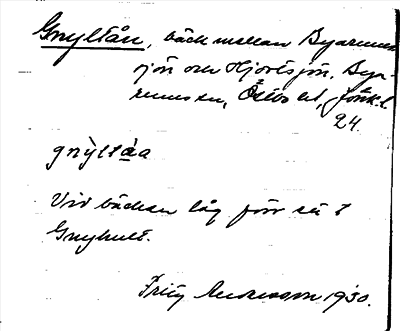 Gnyltån, bäck mellan Byarums
sjön och Hjortsjön, Bya-
rums sn, Östbo hd, Jönk. l.
24.
gnỳltåa
Vid bäcken låg förr ett t
Gnyhult.
Fritz Andersson 1930.